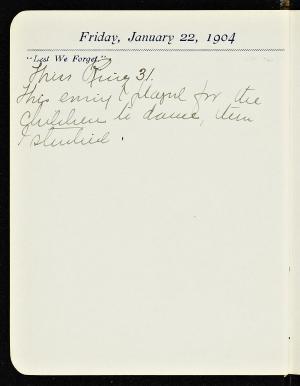 Friday, January 22, 1904
"Lest We Forget."
Ther 31.
This eving I played for the
children to dance, then
I studied.